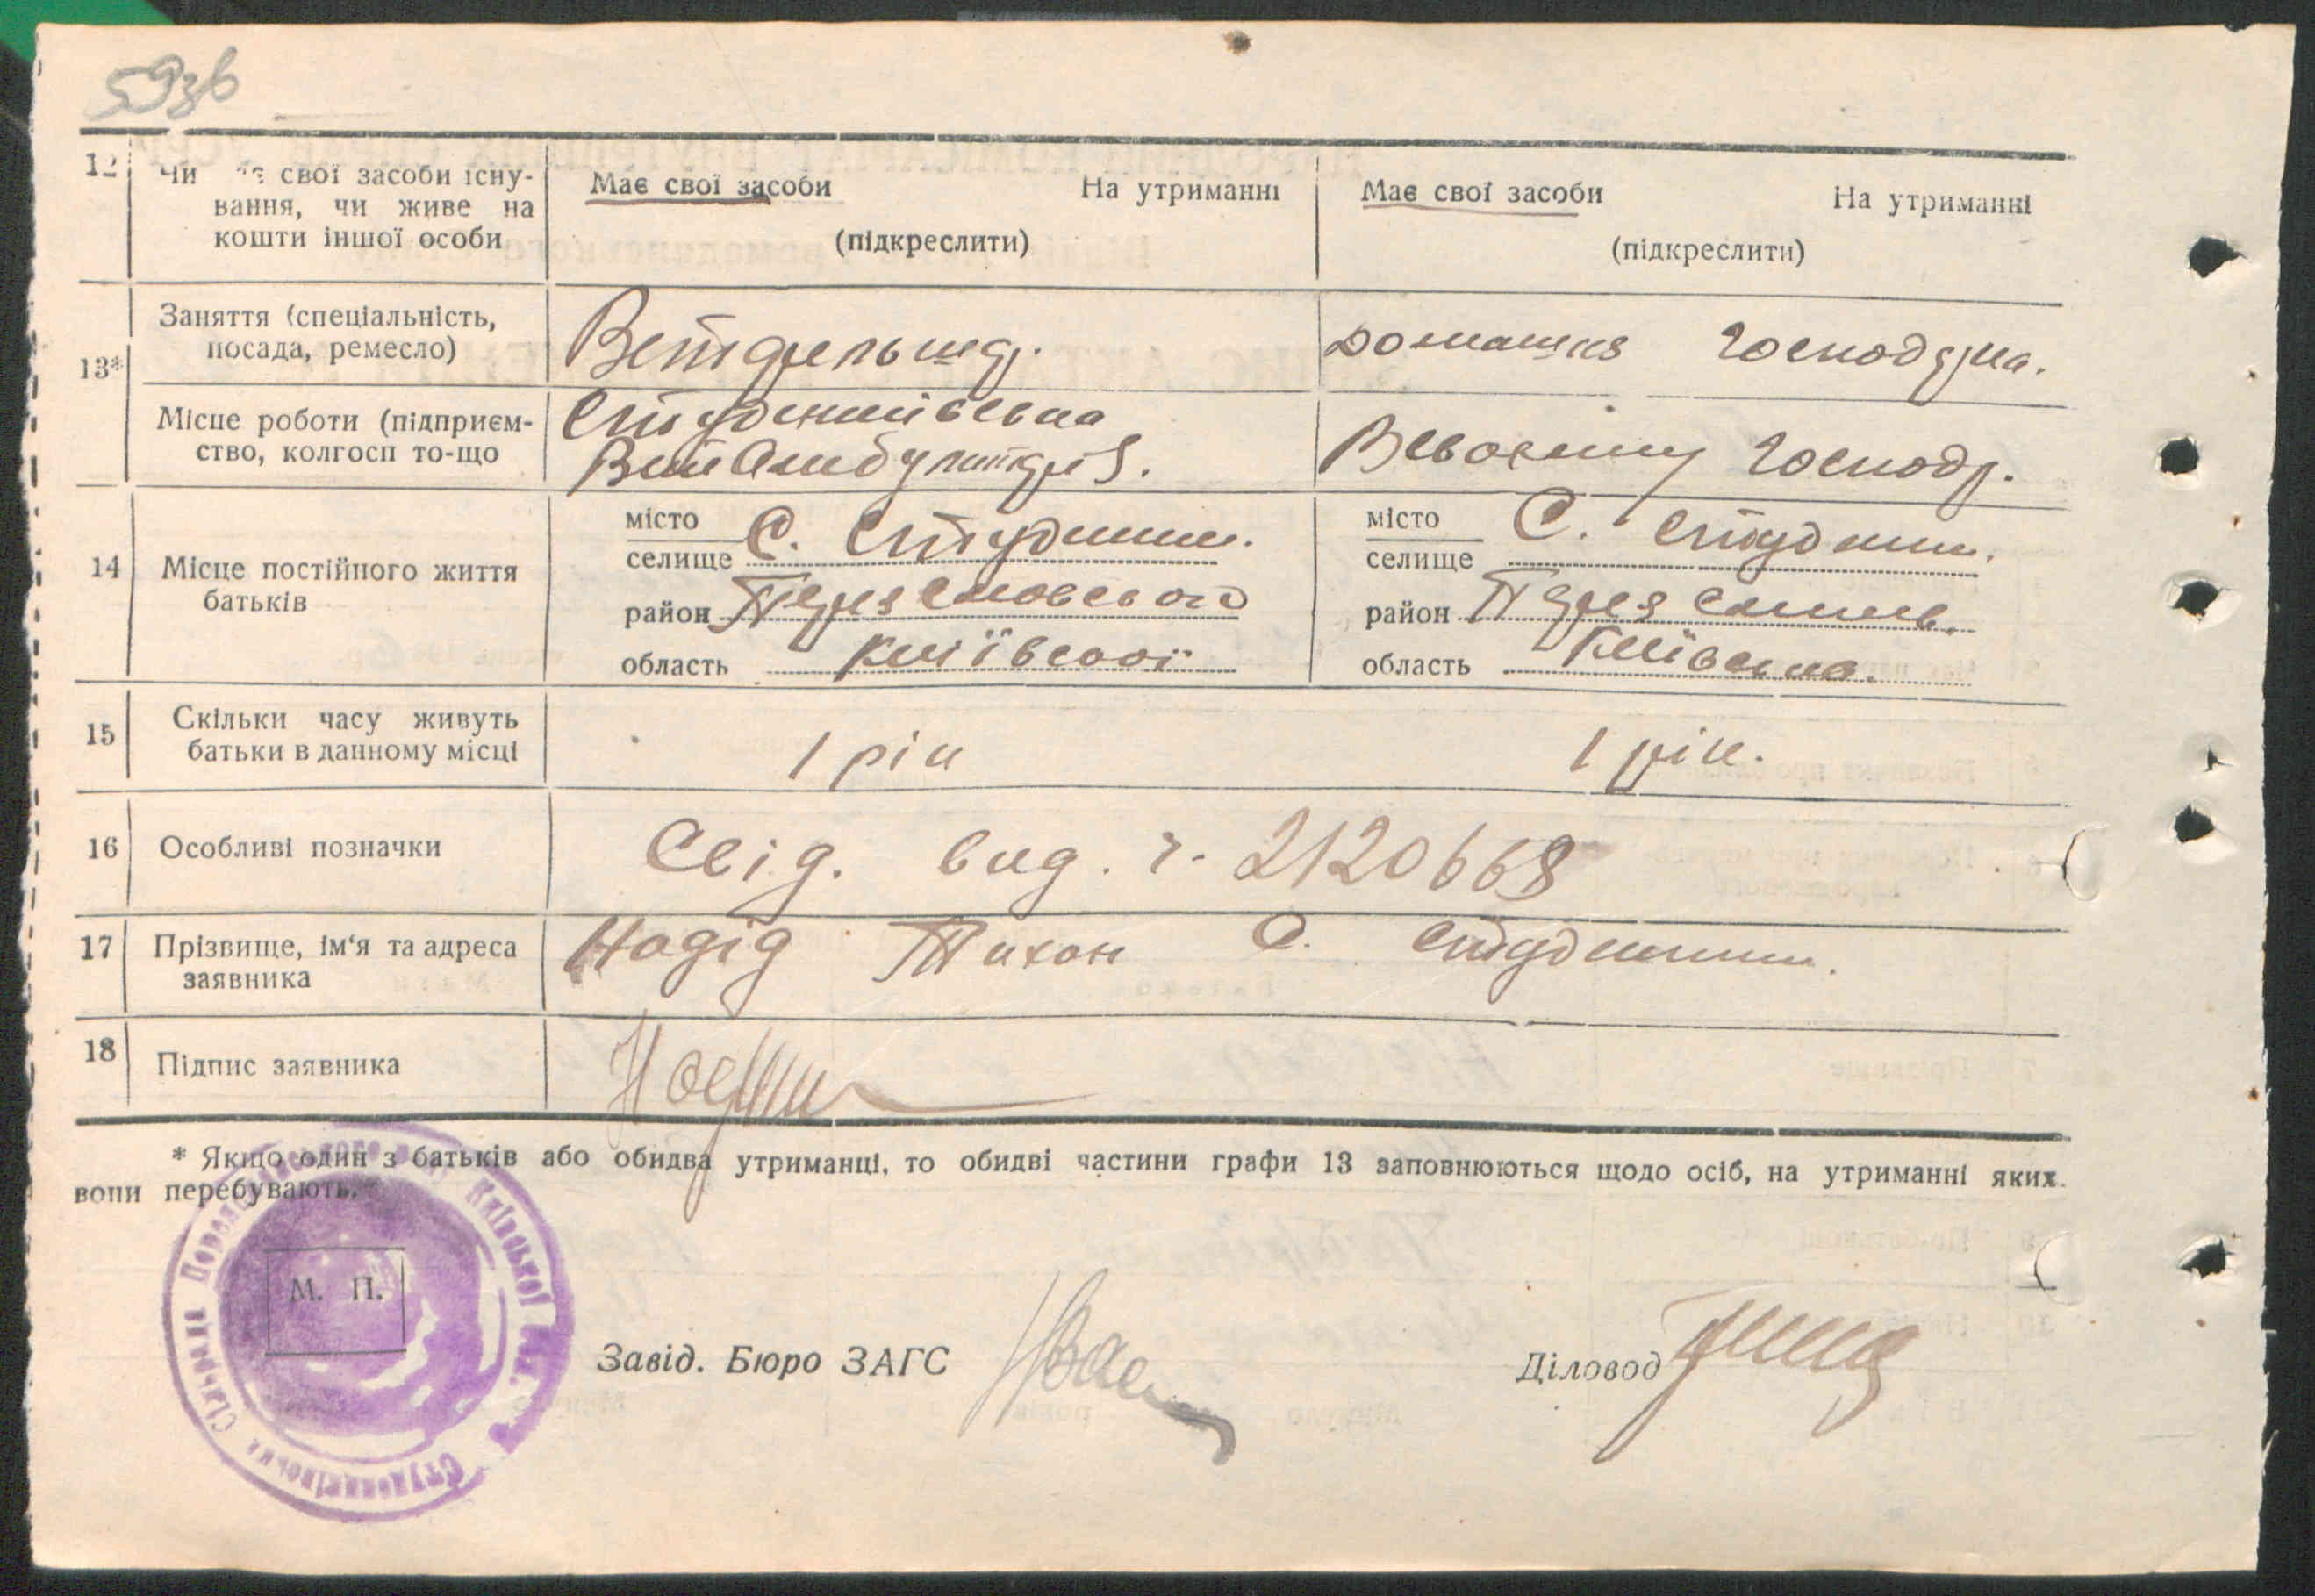 5936
12 Чи має свої засоби існу-
вання, чи живе на
кошти іншої особи
Має свої засоби На утриманні
(підкреслити)
Має свої засоби На утриманні
(підкреслити)
13* Заняття (спеціальність,
посада, ремесло)
Ветфельшдр.
домашня господрка.
Місце роботи (підприєм-
ство, колгосп то-що
Студениківська
Вет Амбулатрія.
В своєму господр.
14 Місце постійного життя
батьків
місто
селище С. Студеники.
район Переяславського
область Київської
місто
селище С. Студеники.
район Переяславськ.
область Київська.
15 Скільки часу живуть
батьки в данному місці
1 рік
1 рік.
16 Особливі позначки
Свід. вид. ч. 2120668
17 Прізвище, ім'я та адреса
заявника
Тихон С. Студеники.
18 Підпис заявника
* Якщо один з батьків або обидва утриманці, то обидві частини графи 13 заповнюються щодо осіб, на утриманні яких
вони перебувають.
М. П.
Студениківська Сільрада Київської обл.
Завід. Бюро ЗАГС
Діловод